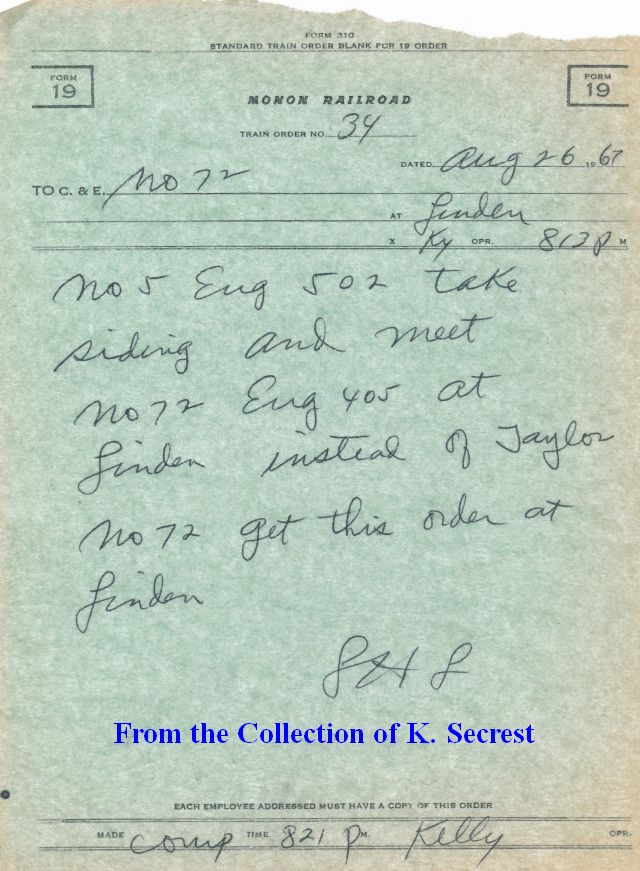 FORM 310
STANDARD TRAIN ORDER BLANK FOR 19 ORDER
FORM 19
FORM 19
MONON RAILROAD
TRAIN ORDER NO. 34
DATED Aug 26 1967
TO C. & E. No 72
AT Linden
X Ky OPR. 812 P M
No 5 Eng 502 take
siding and meet
No 72 Eng 405 at
Linden instead of Taylor
No 72 get this order at
Linden
From the Collection of K. Secrest
EACH EMPLOYEE ADDRESSED MUST HAVE A COPY OF THIS ORDER
MADE comp TIME 821 P M. Kelly OPR.